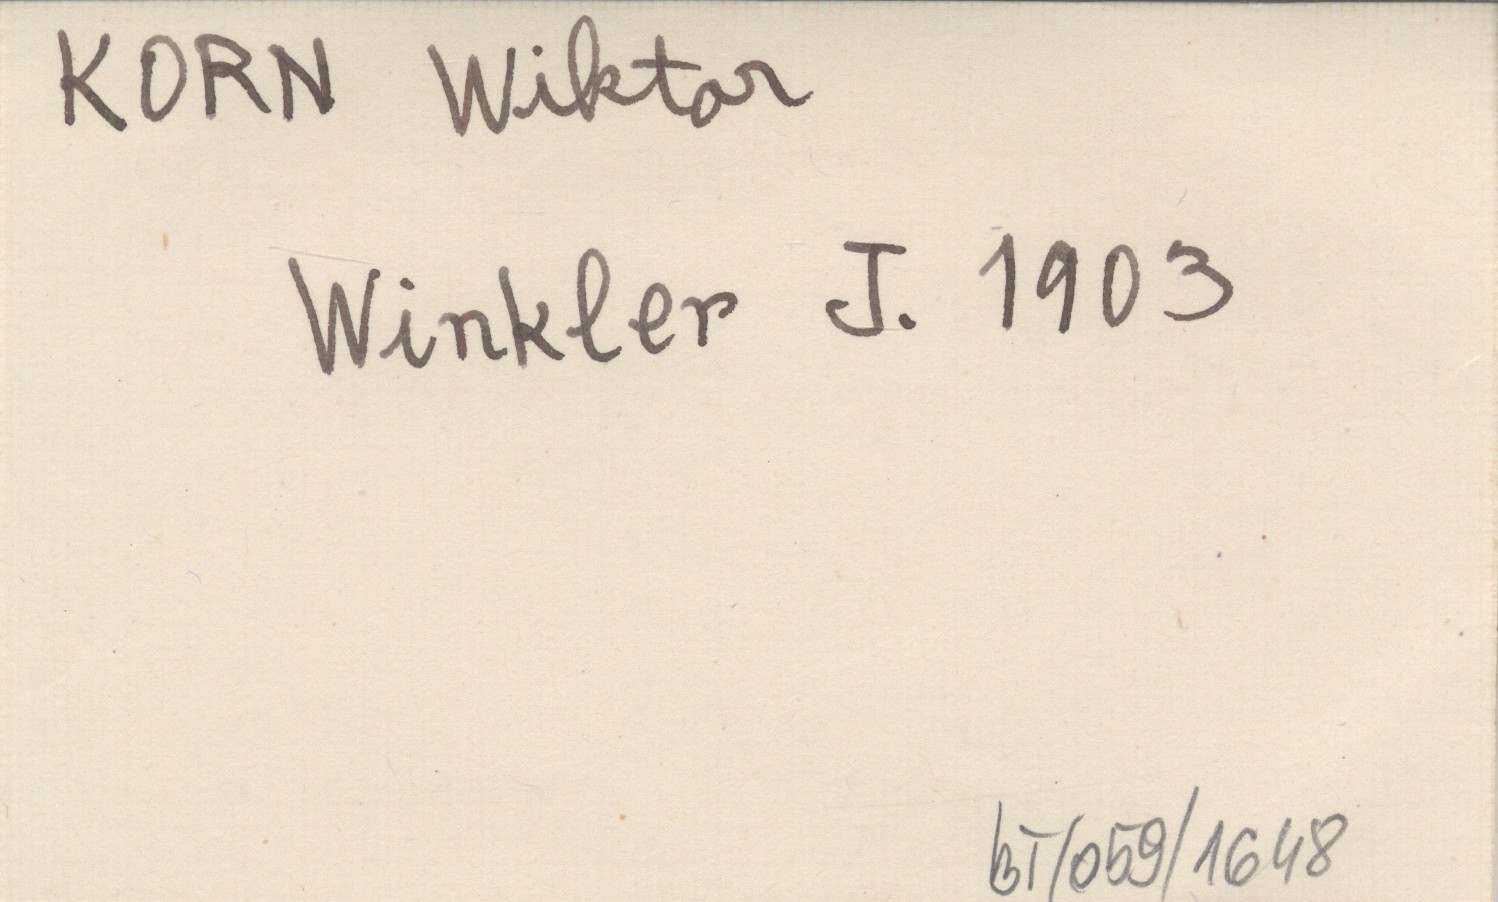 KORN Wiktor
Winkler J. 1903
BT/059/1648